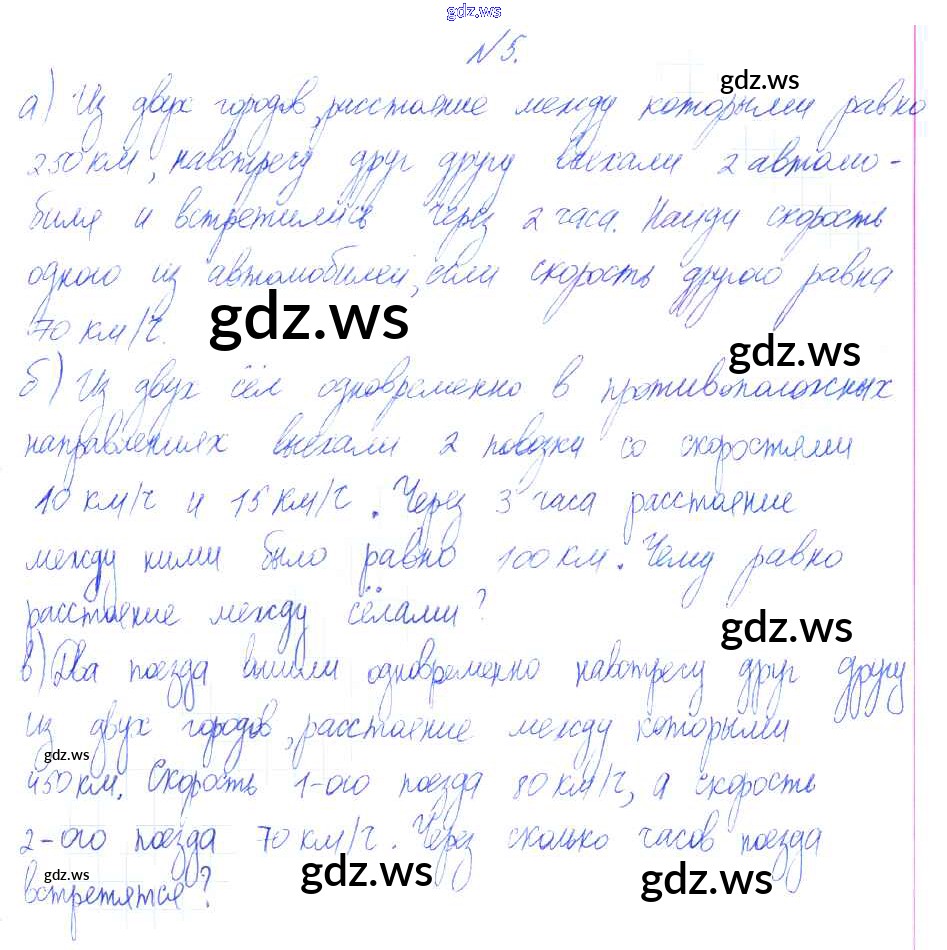 gdz.ws
№5.
gdz.ws
а) Из двух городов, расстояние между которыми равно
250 км, навстречу друг другу выехали 2 автомо-
биля и встретились через 2 часа. Найди скорость
одного из автомобилей, если скорость другого равна
70 км/ч.
gdz.ws
gdz.ws
б) Из двух сёл одновременно в противоположных
направлениях выехали 2 повозки со скоростями
10 км/ч и 15 км/ч. Через 3 часа расстояние
между ними было равно 100 км. Чему равно
расстояние между сёлами?
gdz.ws
в) Два поезда вышли одновременно навстречу друг другу
из двух городов, расстояние между которыми
gdz.ws
450 км. Скорость 1-ого поезда 80 км/ч, а скорость
2-ого поезда 70 км/ч. Через сколько часов поезда
встретятся?
gdz.ws
gdz.ws